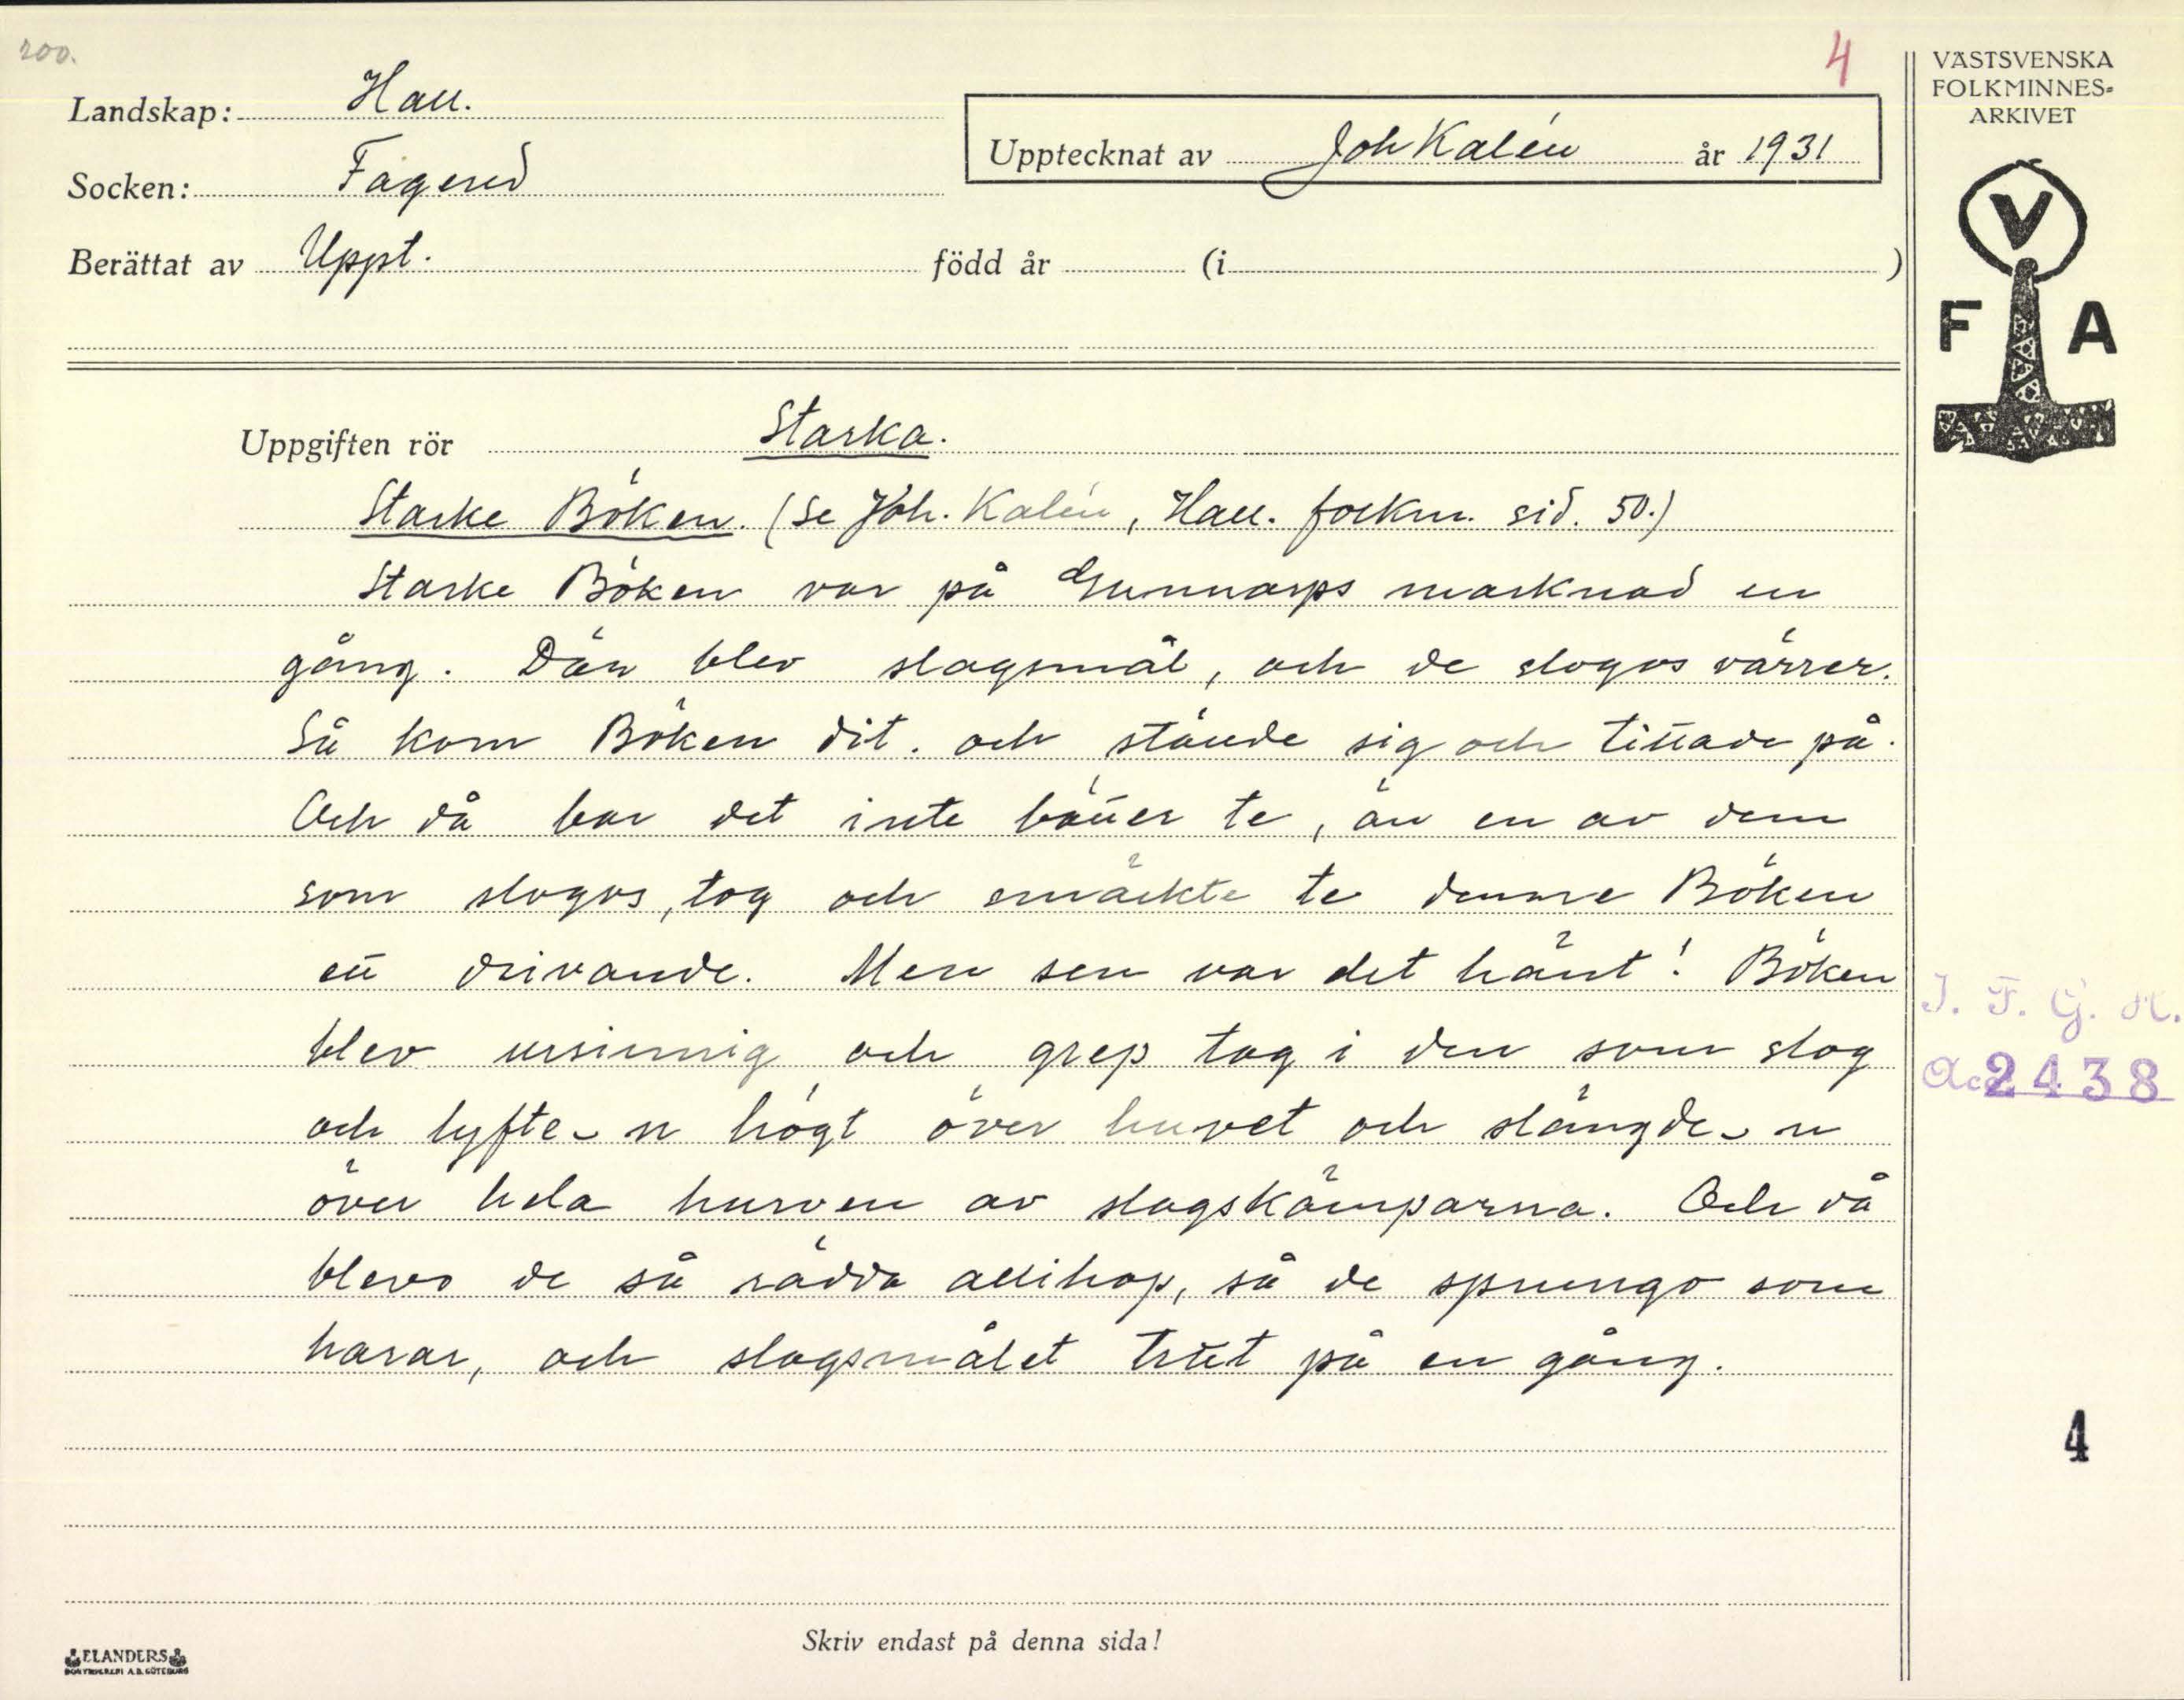 200.
4
VÄSTSVENSKA
FOLKMINNES=
ARKIVET
Landskap: Hall.
Upptecknat av Joh Kalén år 1931
Socken: Fagered
Berättat av Uppt. född år (i )
V
F A
Uppgiften rör Starka.
Starke Böken. (Se Joh. Kalén, Hall. folkm. sid. 50.)
Starke Böken var på Gunnarps marknad en
gång. Där blev slagsmål, och de slogos värrer.
Så kom Böken dit. och ställde sig och tittade på.
Och då bar det inte bätter te, än en av dem
som slogos, tog och smäckte te denne Böken
ett drivande. Men sen var det hänt! Böken
blev ursinnig och grep tag i den som slog
och lyfte-n högt över huvet och slängde-n
över hela hurven av slagskämparna. Och då
blevo de så rädda allihop, så de sprungo som
harar, och slagsmålet tröt på en gång.
I. F. G. H.
Acc 2438
4
Skriv endast på denna sida!
ELANDERS
BOKTRYCKERI A.B. GÖTEBORG